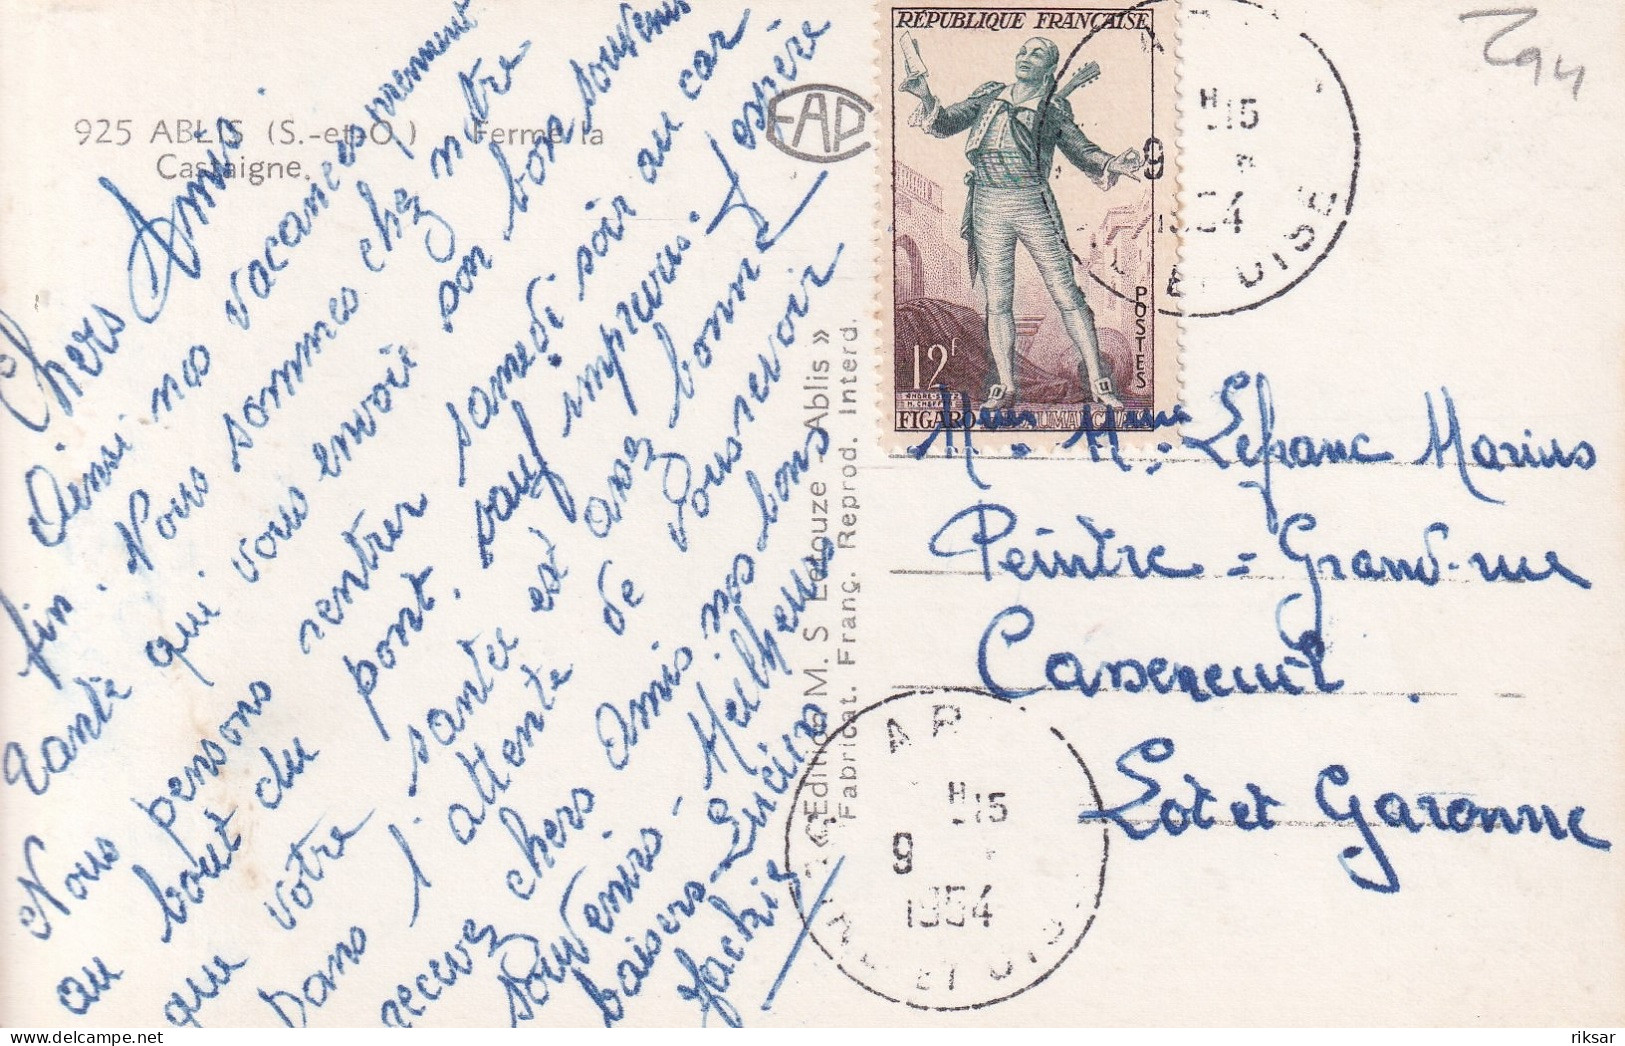 925 ABLIS (S.-et-O.) Ferme la
Castaigne.
EAD
Chers Amis.
Ainsi nos vacances prennent
fin. Nous sommes chez notre
Tante qui vous envoie son bon souvenir
Nous pensons rentrer samedi soir au car
au bout du pont. sauf imprevu. J'espère
que votre santée est assez bonne
Dans l'attente de vous revoir
recevez chers Amis nos bons
souvenirs - Meilheurs
baisers - Lucien
Jackie
« Edition M. S Letouze - Ablis »
Fabricat. Franç. Reprod. Interd.
RÉPUBLIQUE FRANÇAISE
POSTES
12f
FIGARO
H 15
9
1954
ET OISE
Meur Mme Lefranc Marius
Peintre = Grand-rue
Casseneuil
Lot et Garonne
H 15
9
1954
ET OIS
294
riksar